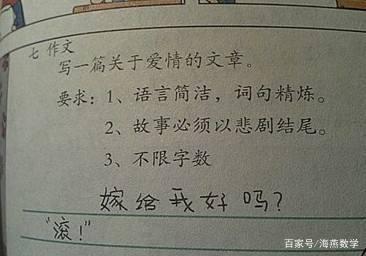 七 作文
写一篇关于爱情的文章。
要求：1、语言简洁，词句精炼。
2、故事必须以悲剧结尾。
3、不限字数
嫁给我好吗？
“滚！”
百家号/海燕数学